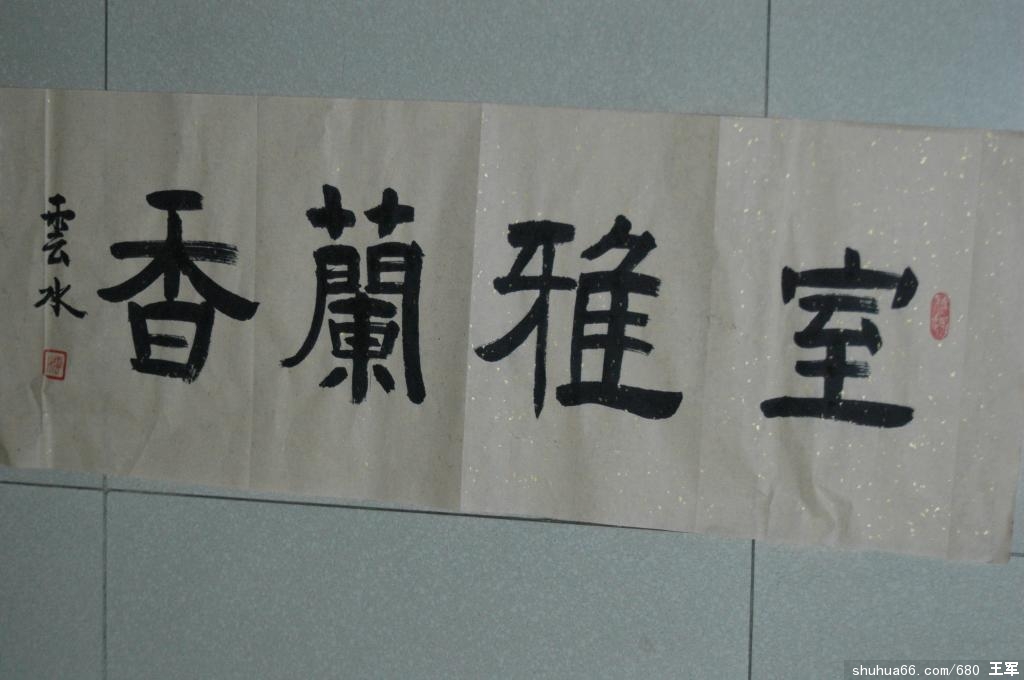 室雅蘭香
雲水
shuhua66.com/680 王军